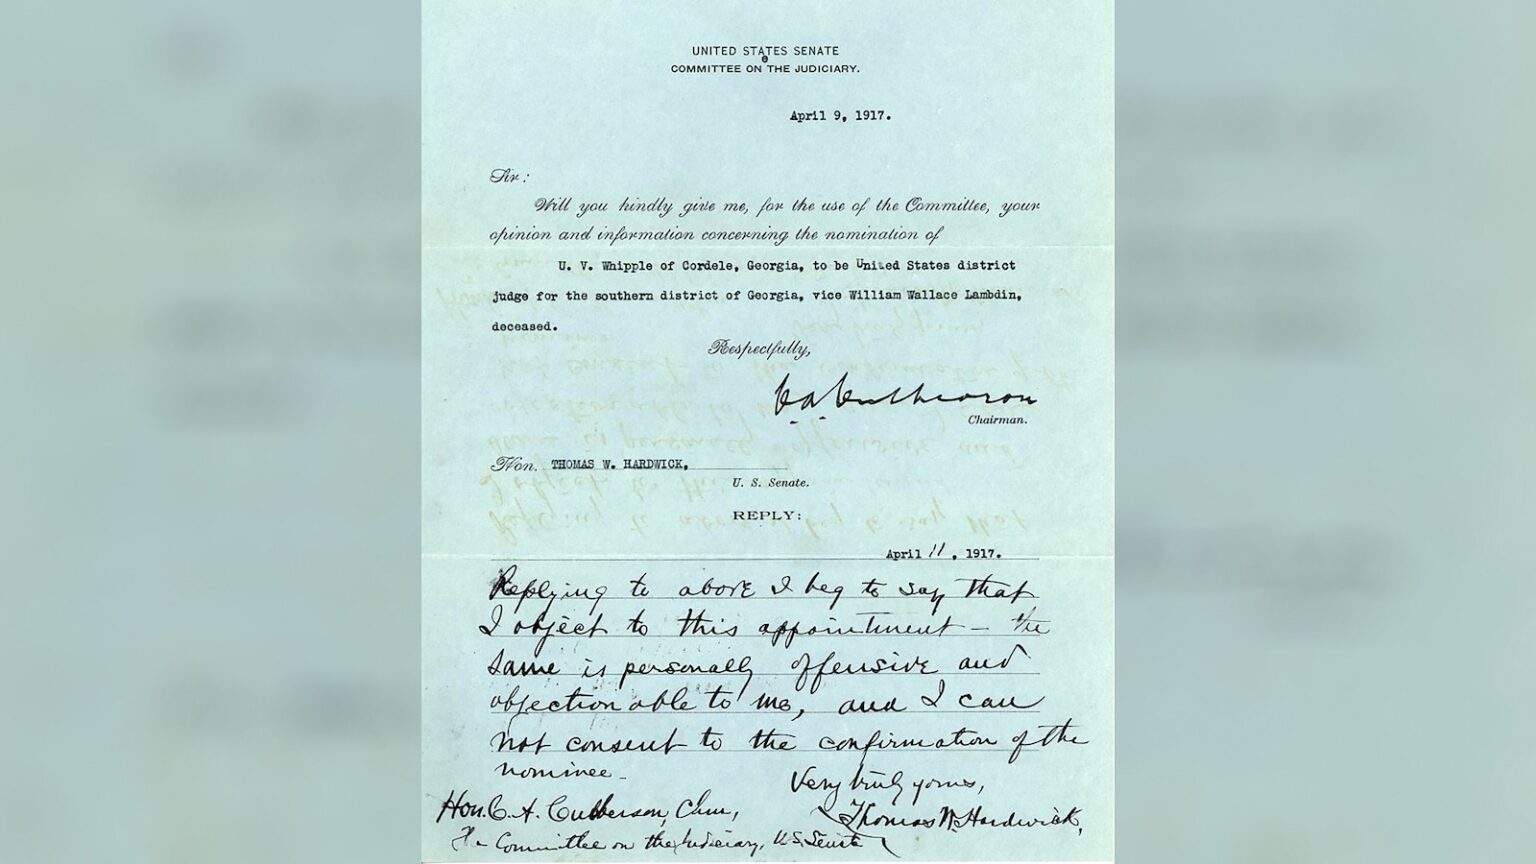 UNITED STATES SENATE
COMMITTEE ON THE JUDICIARY.
April 9, 1917.
Sir:
Will you kindly give me, for the use of the Committee, your
opinion and information concerning the nomination of
U. V. Whipple of Cordele, Georgia, to be United States district
judge for the southern district of Georgia, vice William Wallace Lambdin,
deceased.
Respectfully,
C A Culberson
Chairman.
Hon. THOMAS W. HARDWICK,
U. S. Senate.
REPLY:
April 11, 1917.
Replying to above I beg to say that
I object to this appointment – the
same is personally offensive and
objectionable to me, and I can
not consent to the confirmation of the
nominee.
Very truly yours,
Thomas W. Hardwick,
Hon. C. A. Culberson, Chm,
Committee on the Judiciary, U.S. Senate